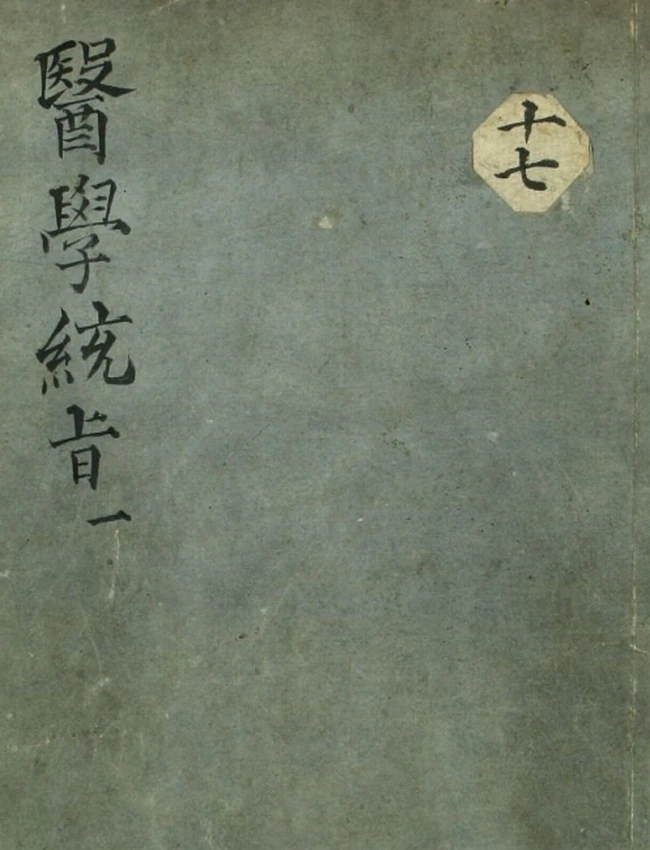 十七
醫學統旨 一